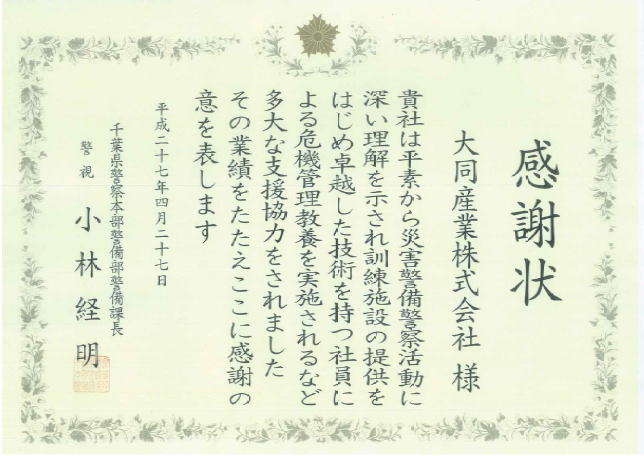 感謝状
大同産業株式会社 様
貴社は平素から災害警備警察活動に
深い理解を示され訓練施設の提供を
はじめ卓越した技術を持つ社員に
よる危機管理教養を実施されるなど
多大な支援協力をされました
その業績をたたえここに感謝の
意を表します
平成二十七年四月二十七日
千葉県警察本部警備部警備課長
警視 小林経明